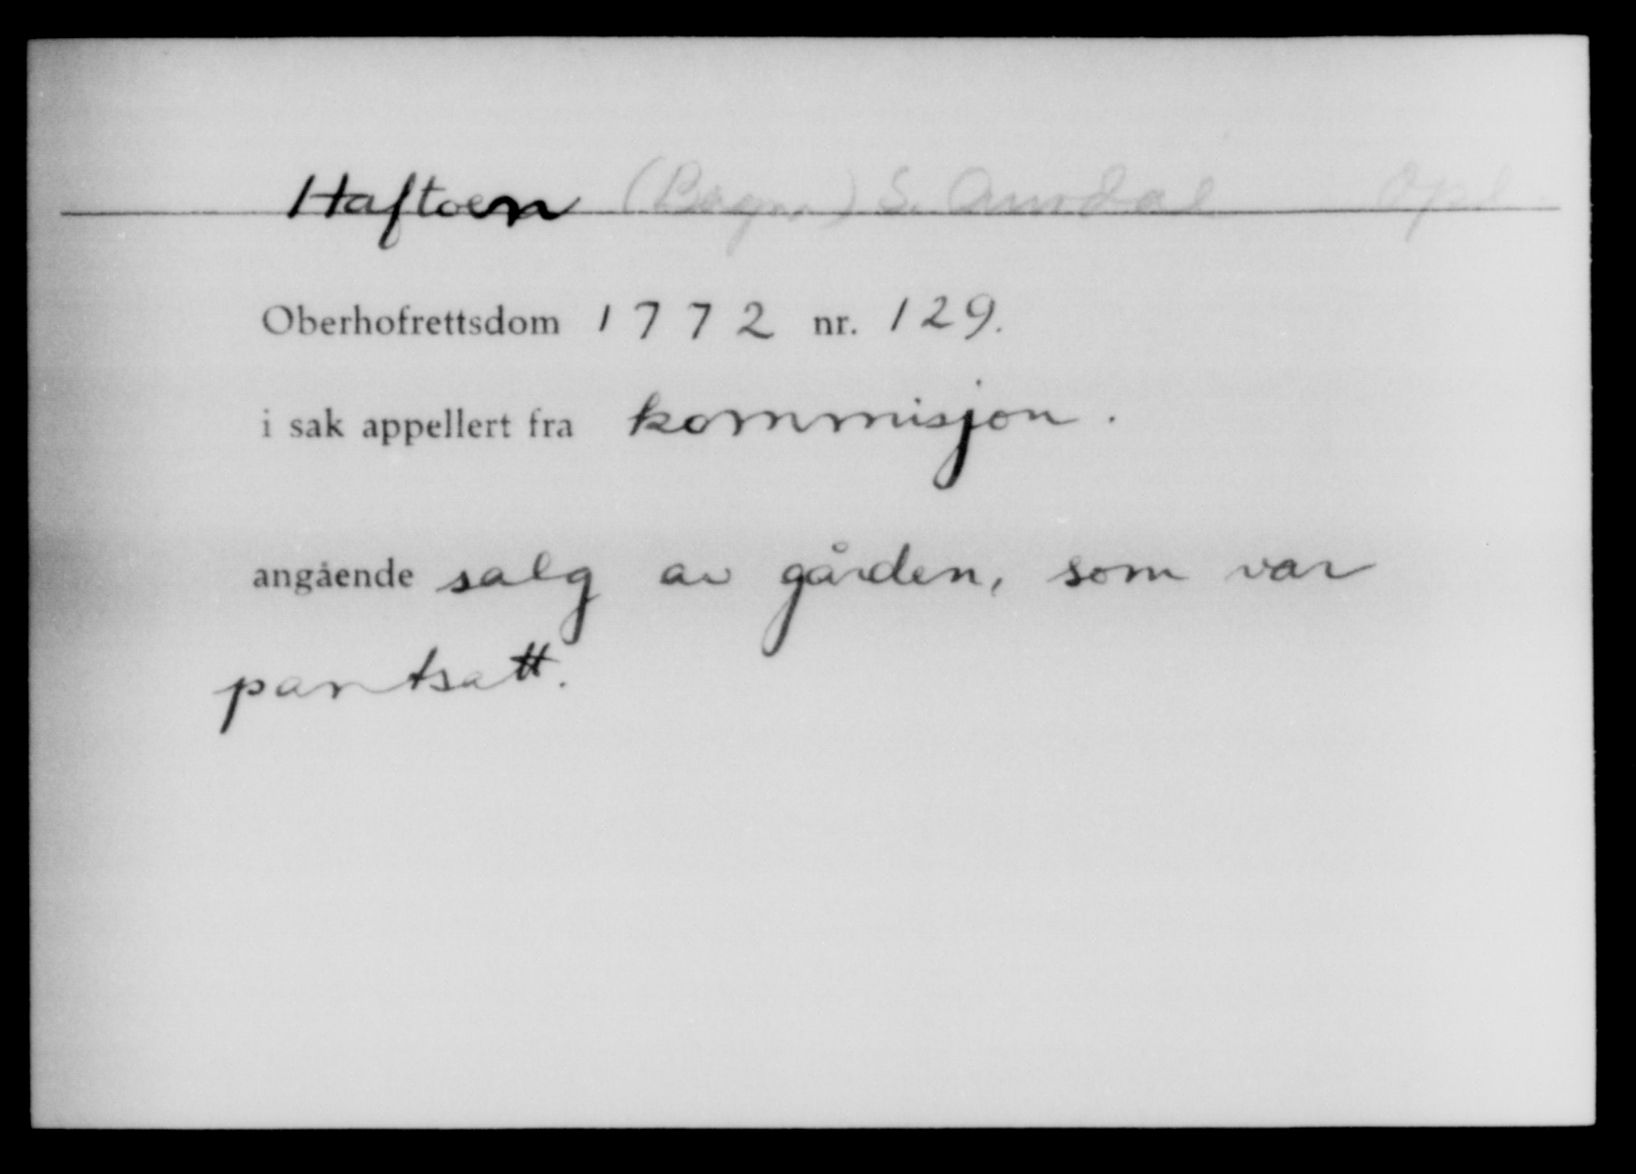 Haftoen (Bagn.) S. Aurdal Opl
Oberhofrettsdom 1772 nr. 129.
i sak appellert fra kommisjon.
angående salg av gården, som var
pantsatt.